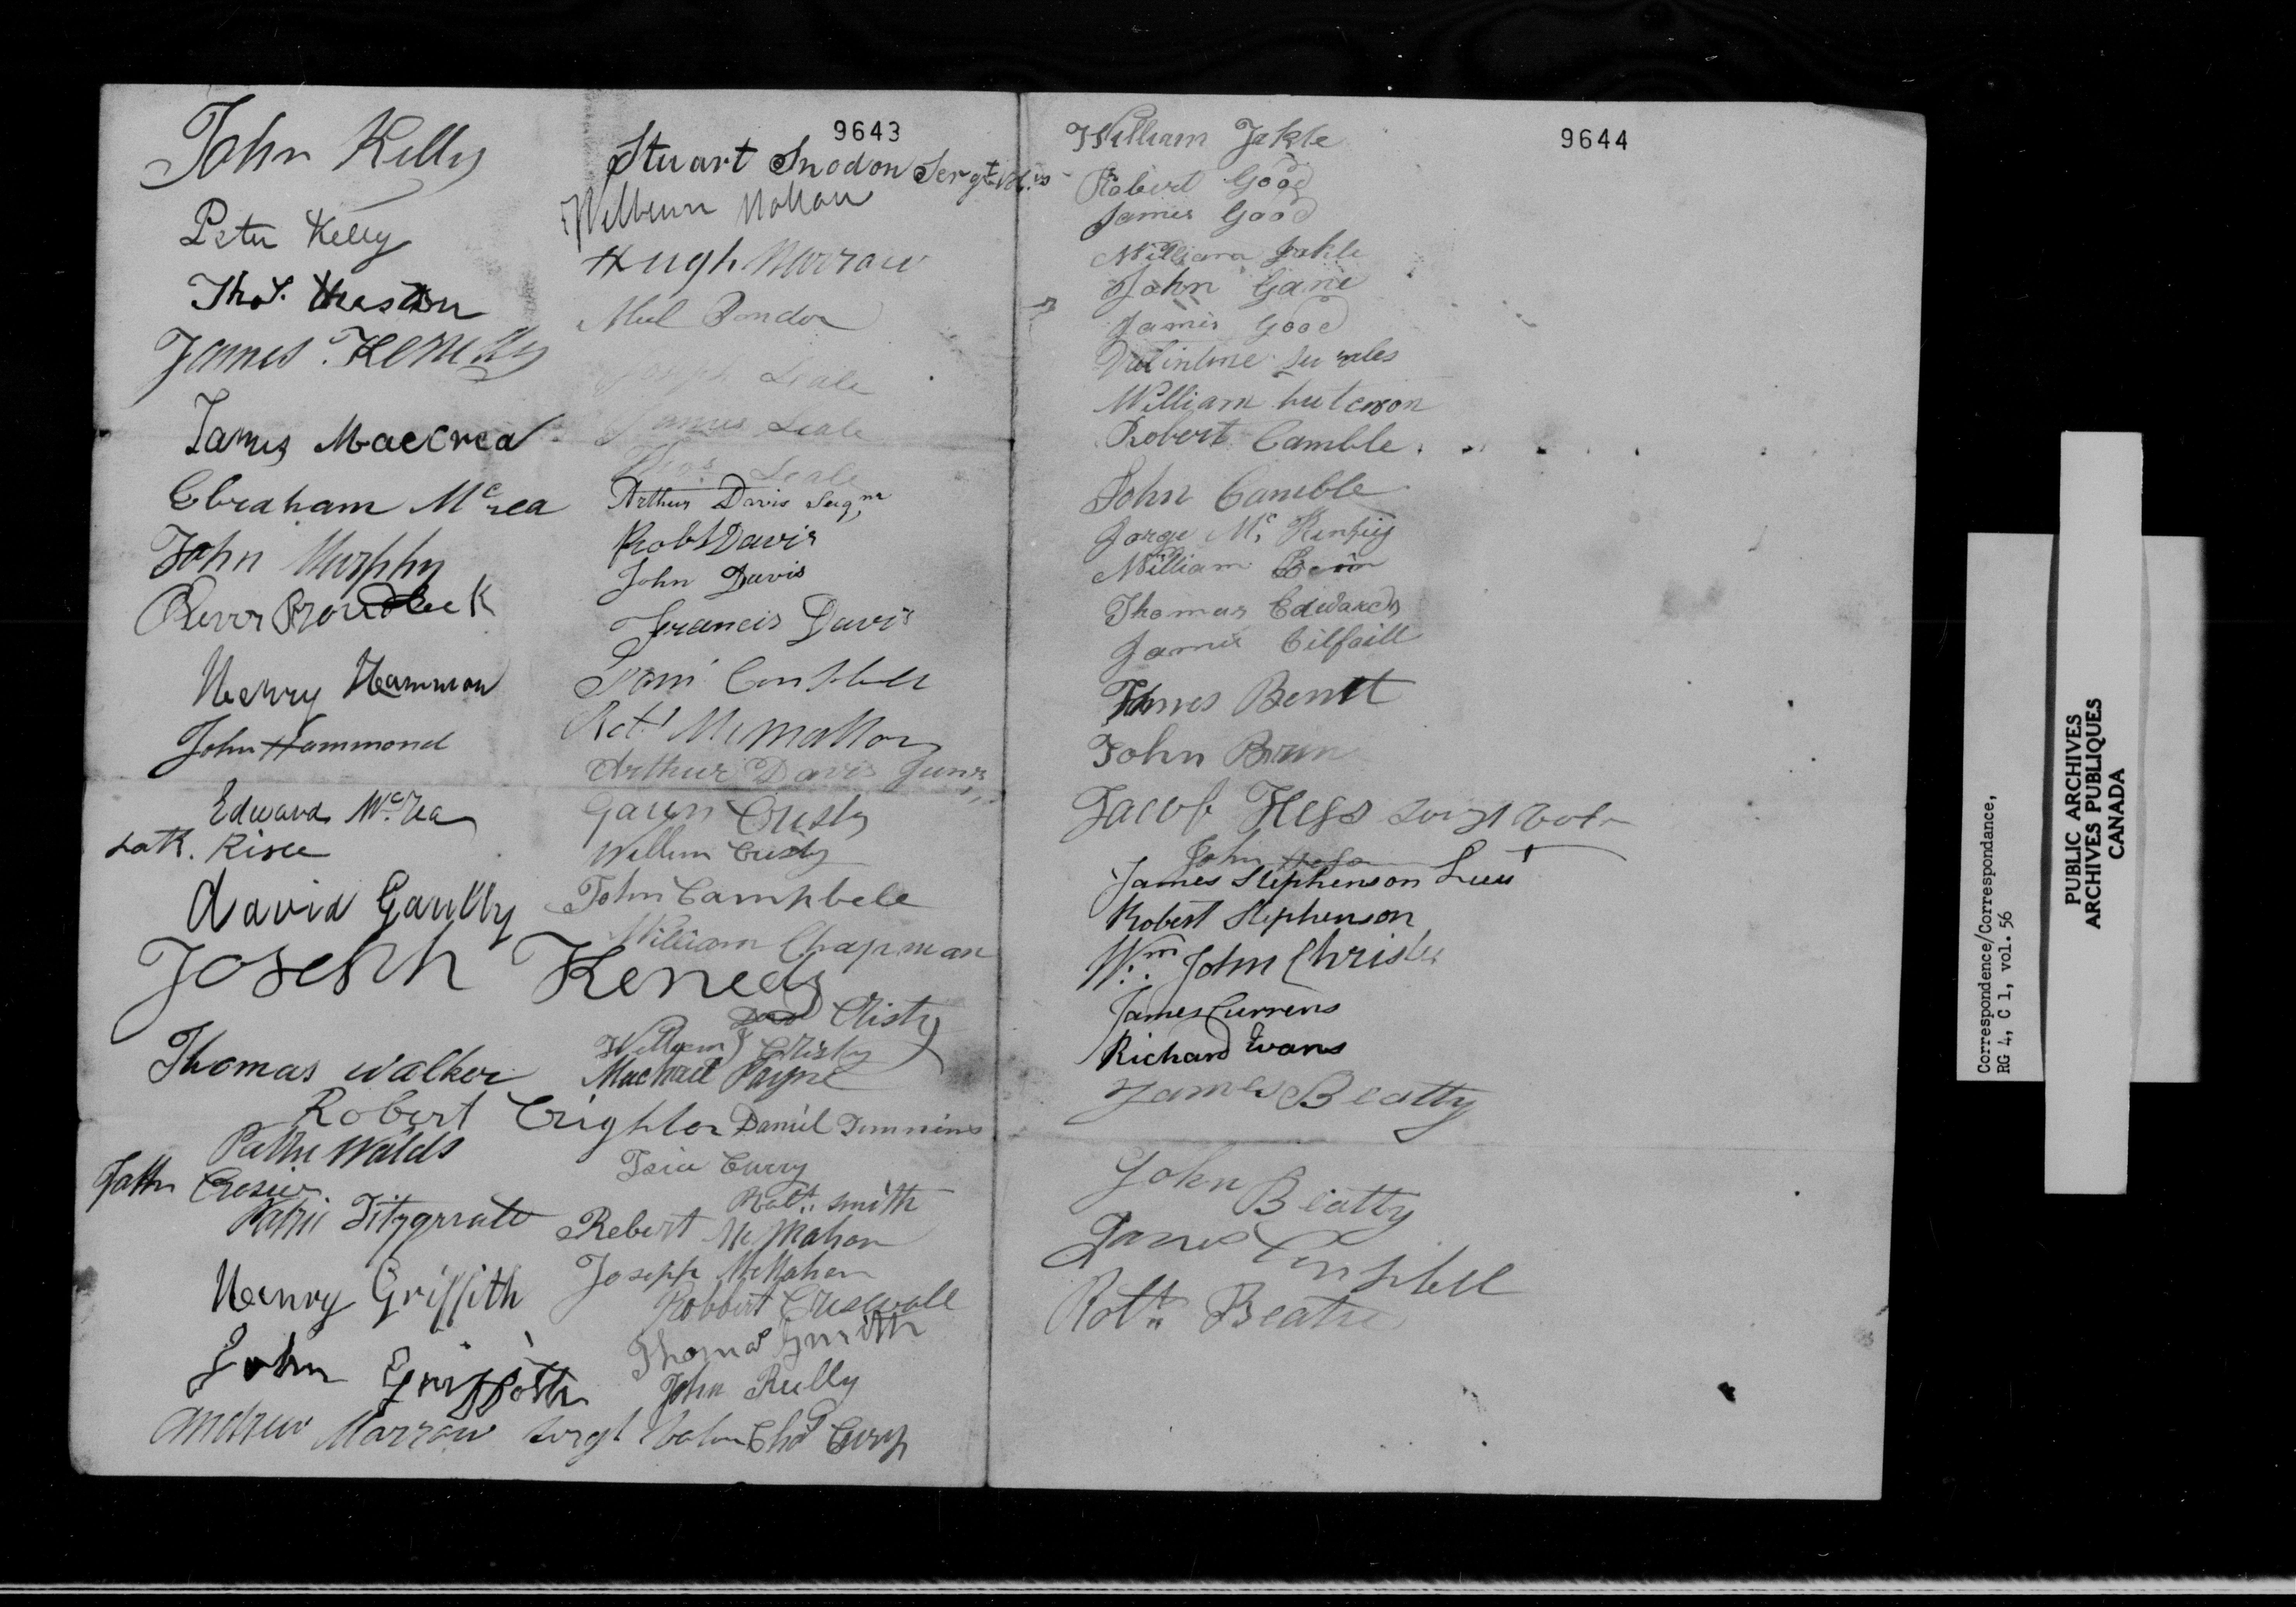 John Kelly
Peter Kelly
Thos. Heaston
James Kenedy
James Maccrea
Ebraham Mc rea
John Murphy
Henry Hammon
John Hammond
Edward Mc. rea
David Gaully
Joseph Kenedy
Thomas Walker
Robert Crighton
Walds
Fitzgerrald
Henry Griffith
John Griffith
Andrew Marrow Sergt
9643
Stuart Snodon Sergt Vol.rs
Hugh Marrow
Joseph Leale
James Leale
Thos. Leale
Arthur Davis
Robt Davis
John Davis
Francis Davis
Mc mahon
Arthur Davis Junr
Gawn Cristy
Willem Cristy
John Campbele
William Chapman
Cristy
William Cristy
Machael Payne
Daniel Timmins
Curry
Robt. Smith
Robert Mc Mahon
Joseph Mc Mahan
Robbert Creswall
Thomas Smith
John Rielly
Chas Curry
9644
William Jakle
Robert Good
James Good
William Jakle
John Gane
James Good
William hutcwon
Robert Camble
John Camble
Jorge Mc. Kinfiy
William
Thomas Edwards
James Cilfaill
James Bennt
John Brun
Jacob Hess
John
James Stephenson Lieut
Robert Stephenson
Wm. John Christie
James Currens
Richard Evans
James Beatty
John Beatty
James Campbell
Robt. Beatie
Correspondence/Correspondance,
RG 4, C 1, vol. 56
PUBLIC ARCHIVES
ARCHIVES PUBLIQUES
CANADA